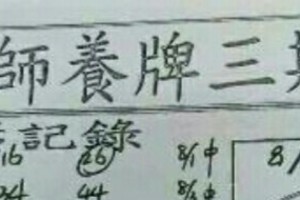 師養牌三
記錄
16 26 8/1中 8/
24 44 8/3中